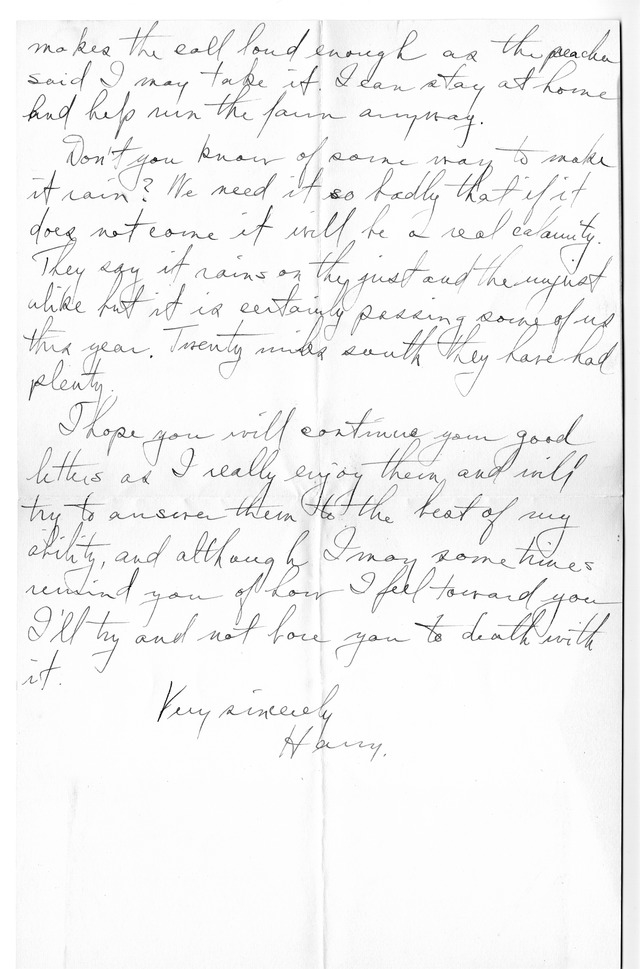 makes the call loud enough as the preacher
said I may take it. I can stay at home
and help run the farm anyway.
Don't you know of some way to make
it rain? We need it so badly that if it
does not come it will be a real calamity.
They say it rains on the just and the unjust
alike but it is certainly passing some of us
this year. Twenty miles south they have had
plenty.
I hope you will continue your good
letters as I really enjoy them and will
try to answer them to the best of my
ability, and although I may sometimes
remind you of how I feel toward you
I'll try and not bore you to death with
it.
Very sincerely
Harry.